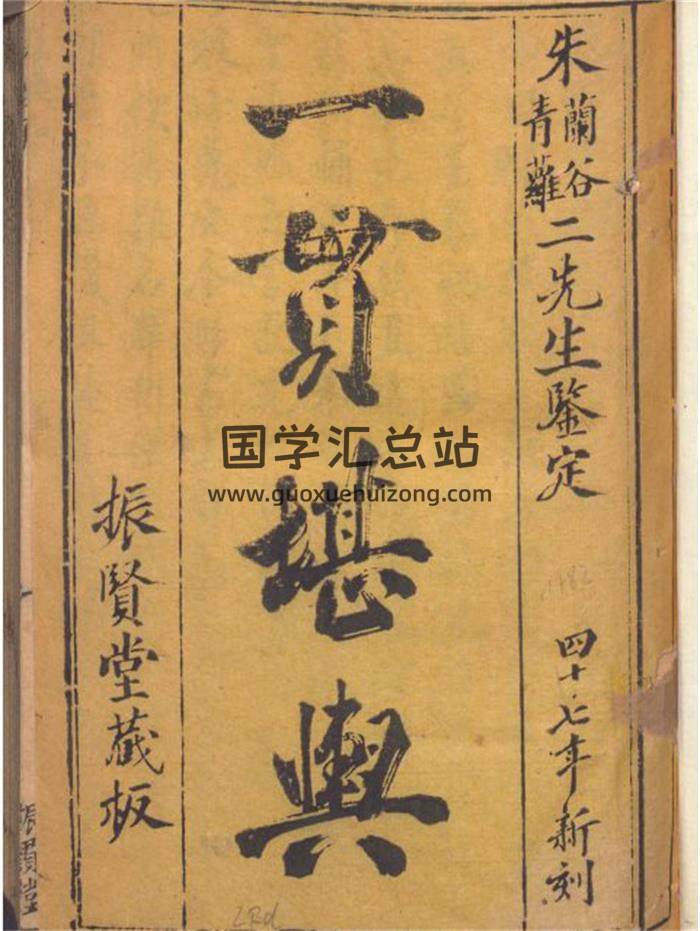 朱蘭谷青蘿二先生鑒定
四十七年新刻
一貫堪輿
振賢堂藏板
国学汇总站
www.guoxuehuizong.com
振賢堂